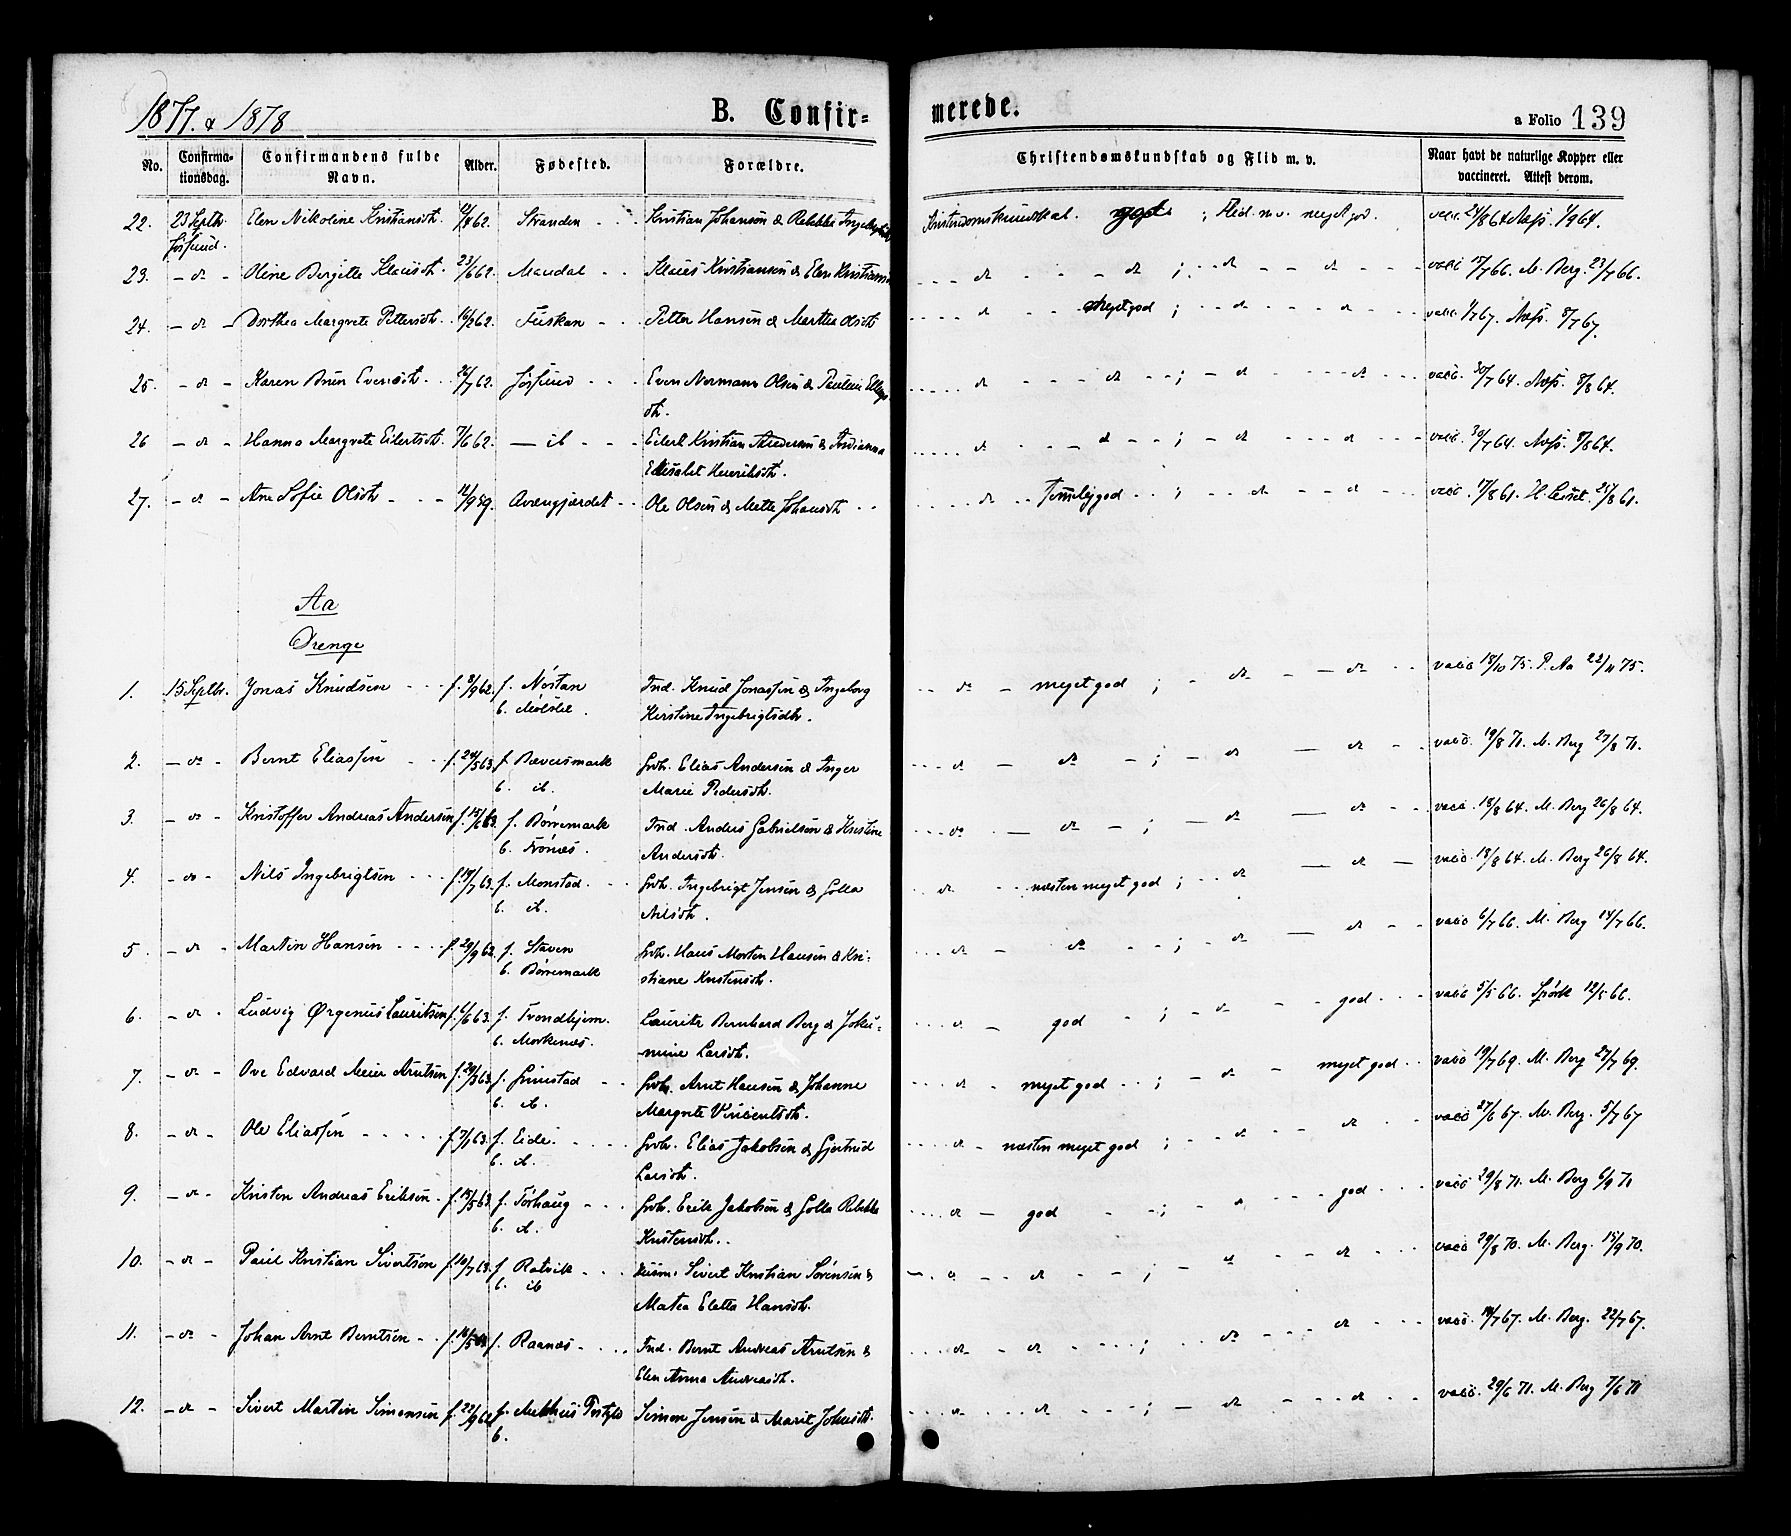 1877. & 1878 B. Confir- merede. a Folio 139
No. Confirma-tionsdag. Confirmandens fulde Navn. Alder. Fødested. Forældre. Christendomskundskab og Flid m. v. Naar havt de naturlige Kopper eller vaccineret. Attest derom.
22. 23 Septb. Elen Nikoline Kristiansdt. /8 62. Stranden - - Kristian Johansen & Rebekka Kristendomskundskab. ; Flid m.v. meget god. vacc. 24/8 64 Næss. 1/9 64.
Jøssund.
23. - do - Oline Bergitte Klausdt. 23/6 62. Mandal - - Klaus Kristiansen & Elen - do - - do ; - do - - do - vacc 17/7 66. M. Berg. 23/7 66.
24. - do - Dorthea Margrete Pettersdt. 16/2 62. - - Petter Hansen & Martha Olsdt - do - - meget god ; - do - - do - vacc. 1/7 67. Næss. 8/7 67.
25. - do - Karen Evensdt. 26/7 62. Jøssund - - - Even Normann Olsen & - do - - do - ; - do - do - vacc. 30/7 64. Næss. 8/8 64.
dt.
26 - do - Hanna Margrete Eilertsdt. 7/6 62. - ib - - Eilert Kristian & - do - - do - - ; - do - - do - vacc. 30/7 64. Næss. 8/8 64.
Elisabet Henriksdt.
27. - do - Ane Sofie Olsdt - - - 12/9 59. - - Ole Olsen & Mette Johansdt - - - do - Temmelig god - - ; - do - - do - vacc. 17/8 61. 21/8 61.
Aa
Drenge
1. 15 Septbr. Jonas Knudsen - - - f. 8/9 62. f. Nöstan Ind. Knud Jonassen & Ingeborg - do - meget god ; - do - - do - vacc 18/10 75. P. Aa 22/11 75.
b. Kirstine Ingebrigtsdt.
2. - do - Bernt Eliassen - - f. 24/5 63. f. Bæversmark Grb. Elias Andersen & Inger - do - do - ; - do - do - vacc. 19/8 71. M. Berg 27/8 71.
b. ib. Marie Pedersdt.
3. - do - Kristoffer Andreas Andersen f. 15/6 63. f. Börremark Ind. Anders Gabrielsen & Kristine - do - do - ; - do - do - vacc. 18/8 64. M. Berg 26/8 64.
b. Andersdt.
4. - do - Nils Ingebrigtsen - - - f. 19/7 63. f. Monstad. - Grb. Ingebrigt Jensen & Golla - do - næsten meget god ; - do - do - vacc. 18/8 64. M. Berg 26/8 64.
b. ib. Nilsdt.
5. - do - Martin Hansen - - - f. 29/9 62. f. Staven Grb. Hans Morten Hansen & Kri- - do - do - - ; - do - do - - vacc 6/7 66. M. Berg 14/7 66.
b. Börremark stiane Kristensdt.
6. - do - Ludvig Ørgenius Lauritsen f. /6 63. f. Trondhjem. Lauritz Bernhard Berg & Joku- - do - god - ; - do - - god - vacc 5/5 66. 12/5 66.
b. Morkenæs. mine Larsdt.
7. - do - Ove Edvard Meier Arntsen f. 20/3 63. f. Grimstad - - Grb. Arnt Hansen & Johanne - do - meget god - - ; - do - meget god - vacc 19/7 69. M. Berg 27/7 69.
b. ib. Margrete Vincentsdt.
8. - do - Ole Eliassen - - - - - f. 7/1 63. f. Eide. - - - Grb. Elias Jakobsen & Gjertrud - do - næsten meget god ; - do - - do - vacc 27/6 67. M. Berg. 5/7 67
b. ib. Larsdt.
9. - do - Kristen Andreas Eriksen - f. 15/5 63. f. Törhaug - - - Grb. Erik Jakobsen & Golla Rebekka - do - god - - ; - do - - god - vacc 29/8 71. M. Berg 6/9 71
b. ib. Kristensdt.
10. - do - Paul Kristian Sivertsen f. 10/7 63. f. Ratvik - - - Husm. Sivert Kristian Sörensen & - do - - do - - ; - do - - do - vacc 29/8 70. M. Berg. 15/9 70.
b. ib Matea Eletta Hansdt.
11. - do - Johan Arnt Berntsen - - f. 16/5 63. f. Raanæs - - - Ind. Bernt Andreas Arntsen & - do - do - - ; - do - - do - vacc. 14/7 67. M. Berg. 22/7 67.
Elen Anna Andreasdt.
12. - do - Sivert Martin Simonsen f. 22/9 62. f. Melhus Simon Jensen & Marit Johnsdt. - do - do - - ; - do - - do - vacc. 29/6 71. M. Berg 7/6 71
b.